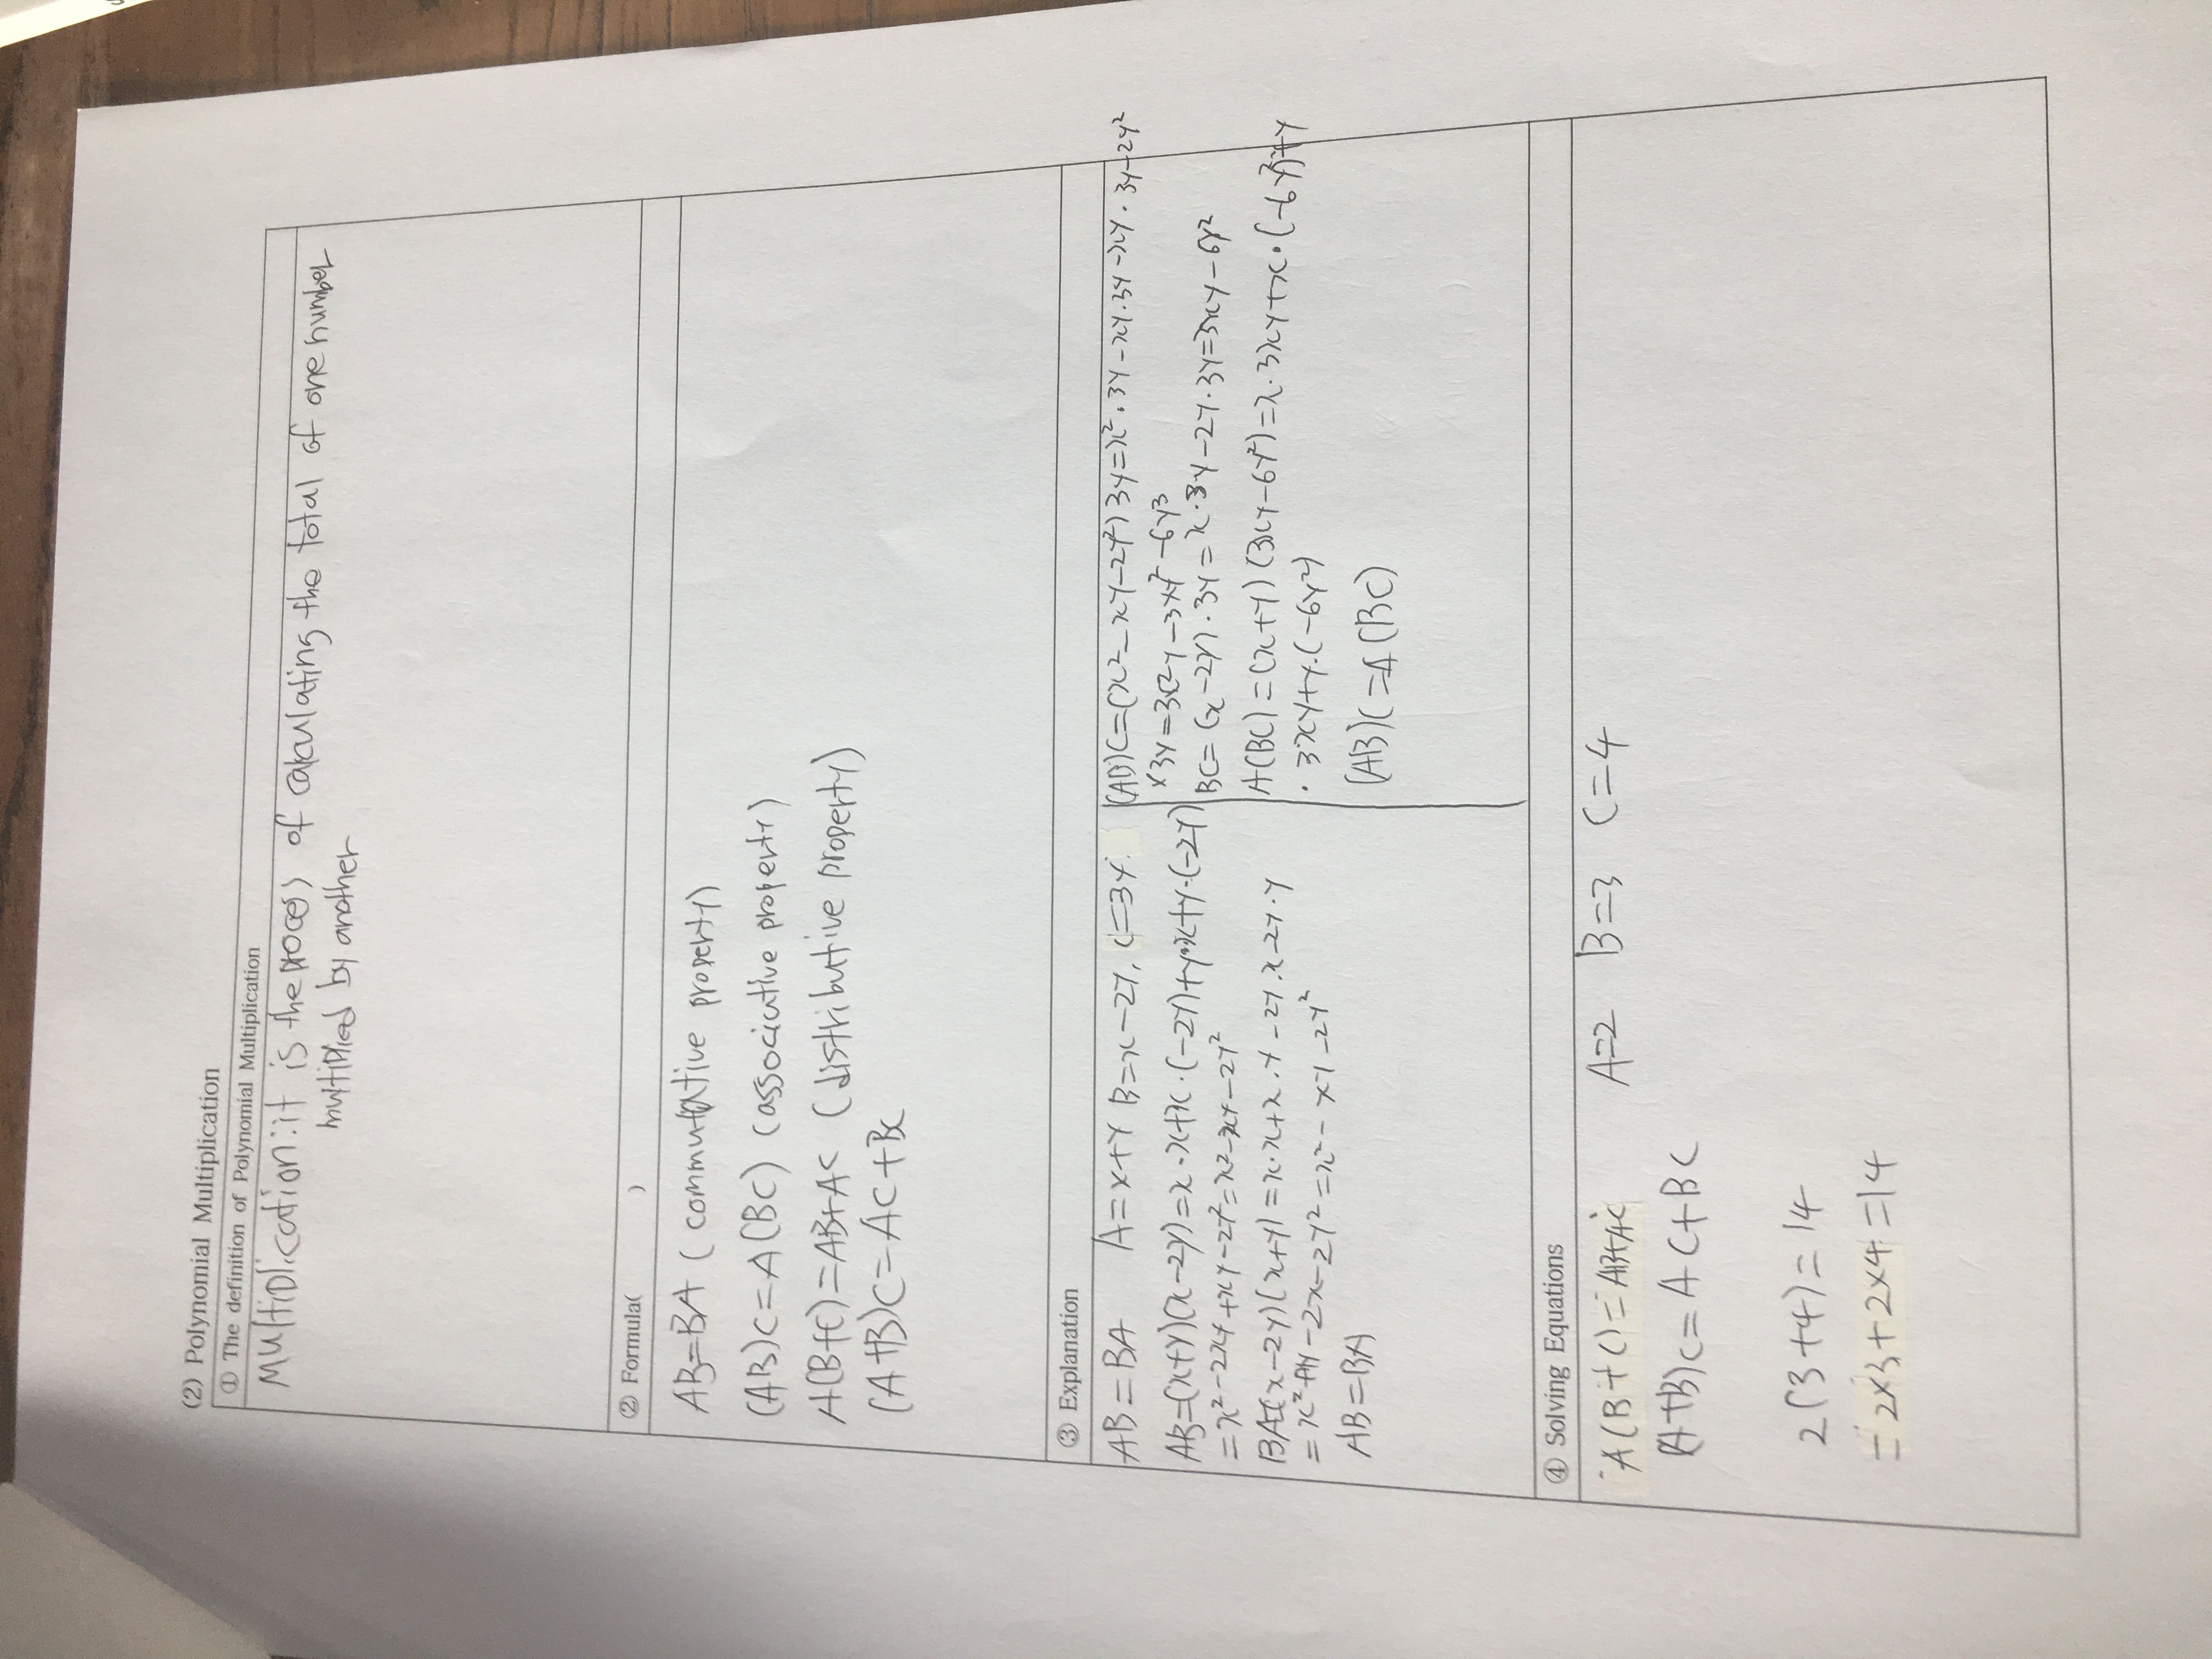 (2) Polynomial Multiplication
① The definition of Polynomial Multiplication
Multiplication: it is the process of calculating the total of one number
multiplied by another
② Formula( )
AB=BA (commutative property)
(AB)C=A(BC) (associative property)
A(B+C)=AB+AC (distributive property)
(A+B)C=AC+BC
③ Explanation
AB=BA A=x+y B=x-2y, C=3y.
AB=(x+y)(x-2y)=x·x+x·(-2y)+y·x+y·(-2y)
=x²-2xy+xy-2y²=x²-xy-2y²
BA=(x-2y)(x+y)=x·x+x·y-2y·x-2y·y
=x²+xy-2x-2y²=x²-xy-2y²
AB=BA
(AB)C=(x²-xy-2y²)3y=x²·3y-xy·3y-xy·3y-2y²
×3y=3x²y-3xy²-6y³
BC=(x-2y)·3y=x·3y-2y·3y=3xy-6y²
A(BC)=(x+y)(3xy-6y²)=x·3xy+x·(-6y²)+y
·3xy+y·(-6y²)
(AB)C=A(BC)
④ Solving Equations
A(B+C)=AB+AC A=2 B=3 C=4
(A+B)C=AC+BC
2(3+4)=14
=2×3+2×4=14